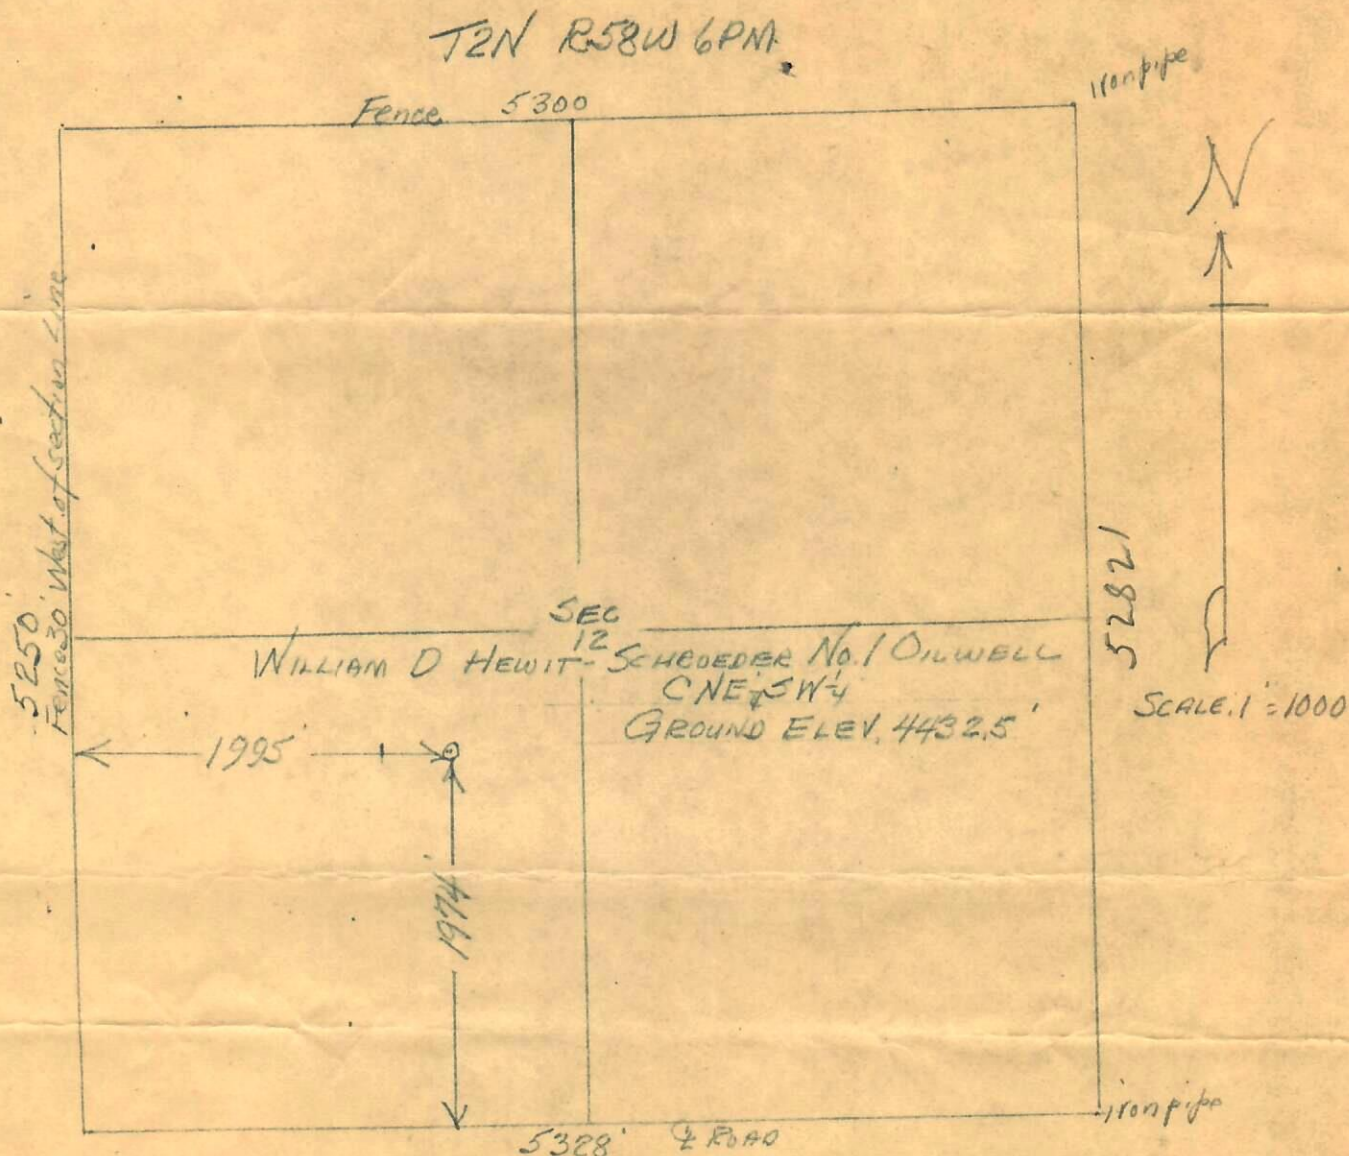 T2N R58W 6PM
iron pipe
Fence 5300
N
5250'
Fence 30' West of section Line
52821
SEC
12
WILLIAM D HEWIT-SCHROEDER No.1 OILWELL
CNE¼SW¼
GROUND ELEV. 4432.5'
SCALE 1"=1000
1995'
1974'
iron pipe
5328' ℄ ROAD